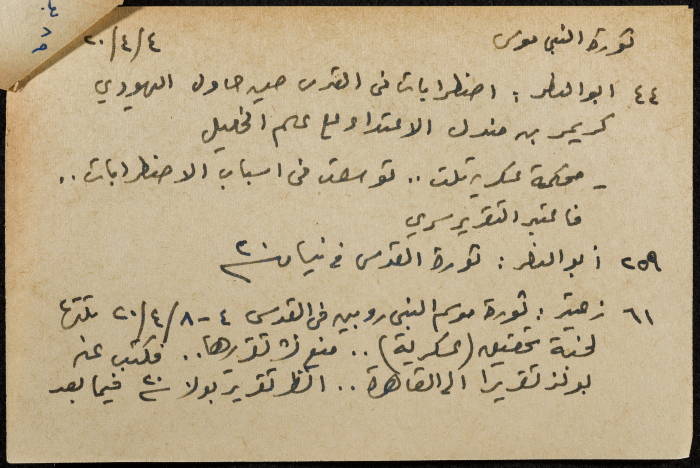 ثورة النبي موسى ٢٠/٤/٤
٤٤ ابو النظر : اضطرابات في القدس حين حاول اليهودي
كريمر بن مندل الاعتداء على علم الخليل
- محكمة عسكرية تلت .. توسعت في اسباب الاضطرابات ..
فاعتبر التقرير سري
٢٥٩ ابو النظر : ثورة القدس في نيسان ٢٠
٦١ زعيتر : ثورة موسم النبي روبين في القدس ٤-٢٠/٤/٨ تلتها
لجنة تحقيق (عسكرية) .. منع نشر تقريرها .. فكتب عنه
بولز تقريرا الى القاهرة .. انظر تقرير بولز ٢٠ فيما بعد